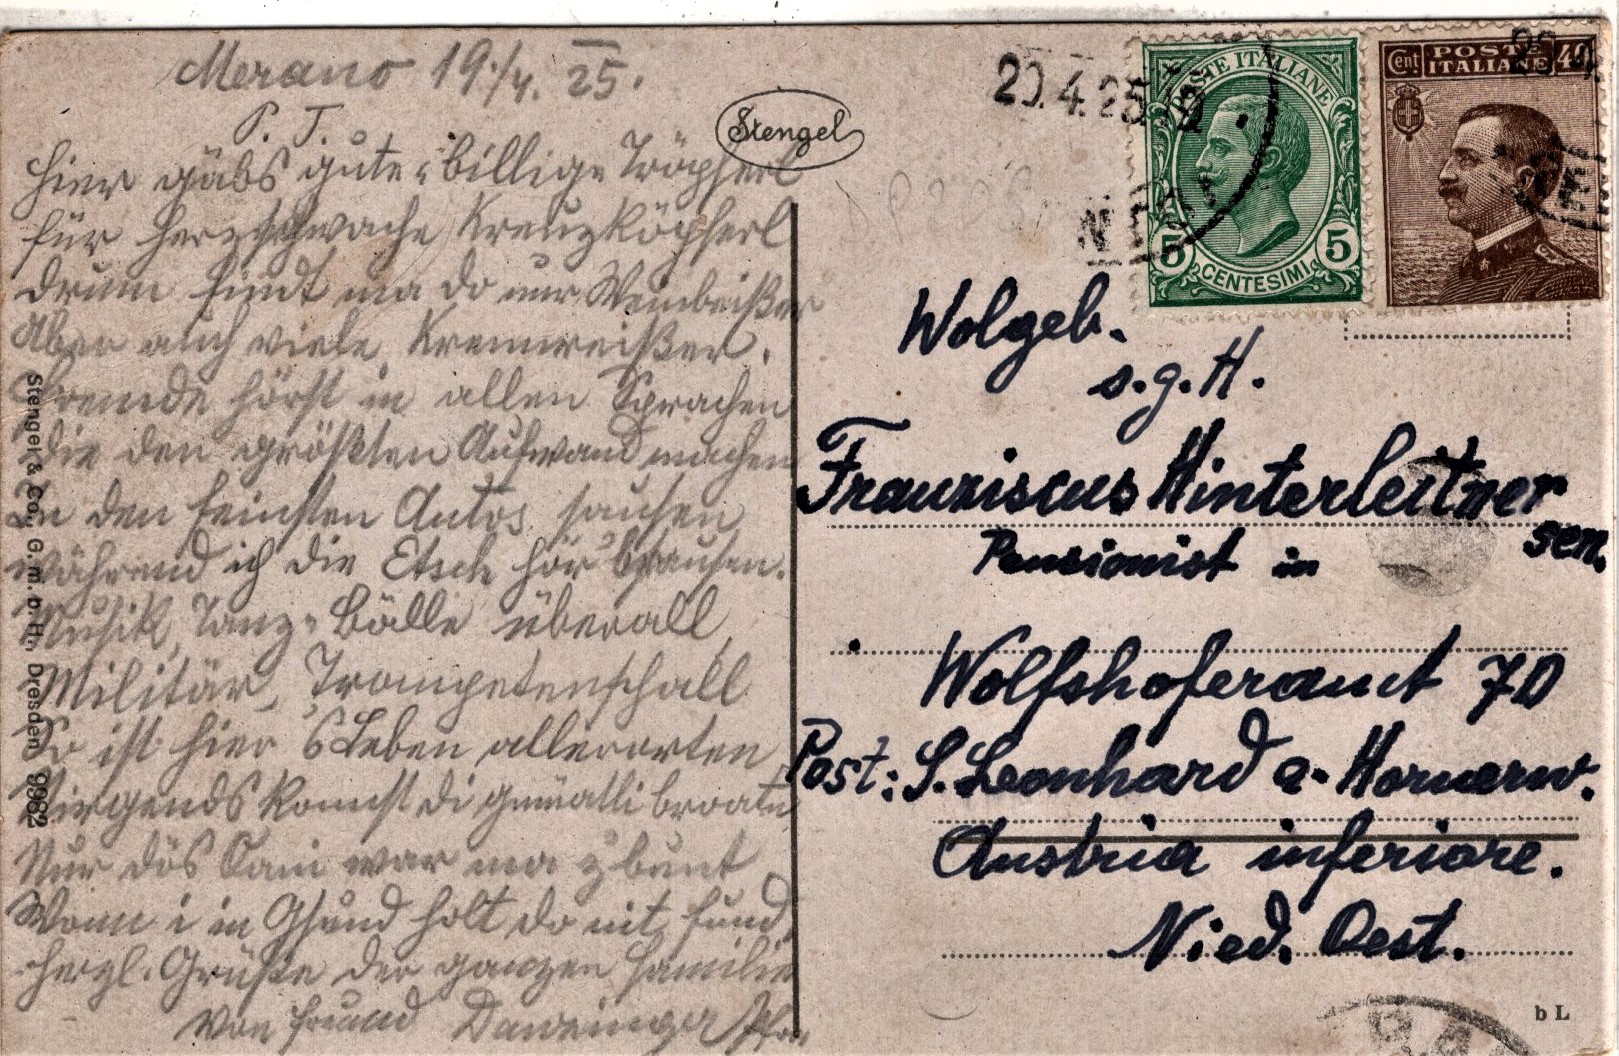 Merano 19./4. 25.
P. T.
Hier gäbs gute billige Tröpferl
für herzschwache Kreuzköpferl
Drum findt ma do nur Weinbeißer
Aber auch viele Krennreißer.
Fremde hörst in allen Sprachen
Die den größten Aufwand machen
In den feinsten Autos sausen
während ich die Etsch hör brausen.
Musik, Tanz, Bälle überall,
Militär, Trompetenschall
So ist hier 's Leben allerorten
Nirgends kannst di gmüatli broatn
Nur dös Oani war ma z'bunt
Wann i in Gsund holt do nit fund,
Herzl. Grüße der ganzen Familie
Von Freund
Stengel
Stengel & Co., G. m. b. H., Dresden 9982
20.4.25
POSTE ITALIANE
5 CENTESIMI 5
Cent POSTE ITALIANE 40
Wolgeb.
s.g.H.
Franziscus Hinterleitner
sen.
Pensionist in
Wolfshoferamt 70
Post: S. Leonhard a. Hornerw.
Austria inferiore.
Nied. Oest.
b L